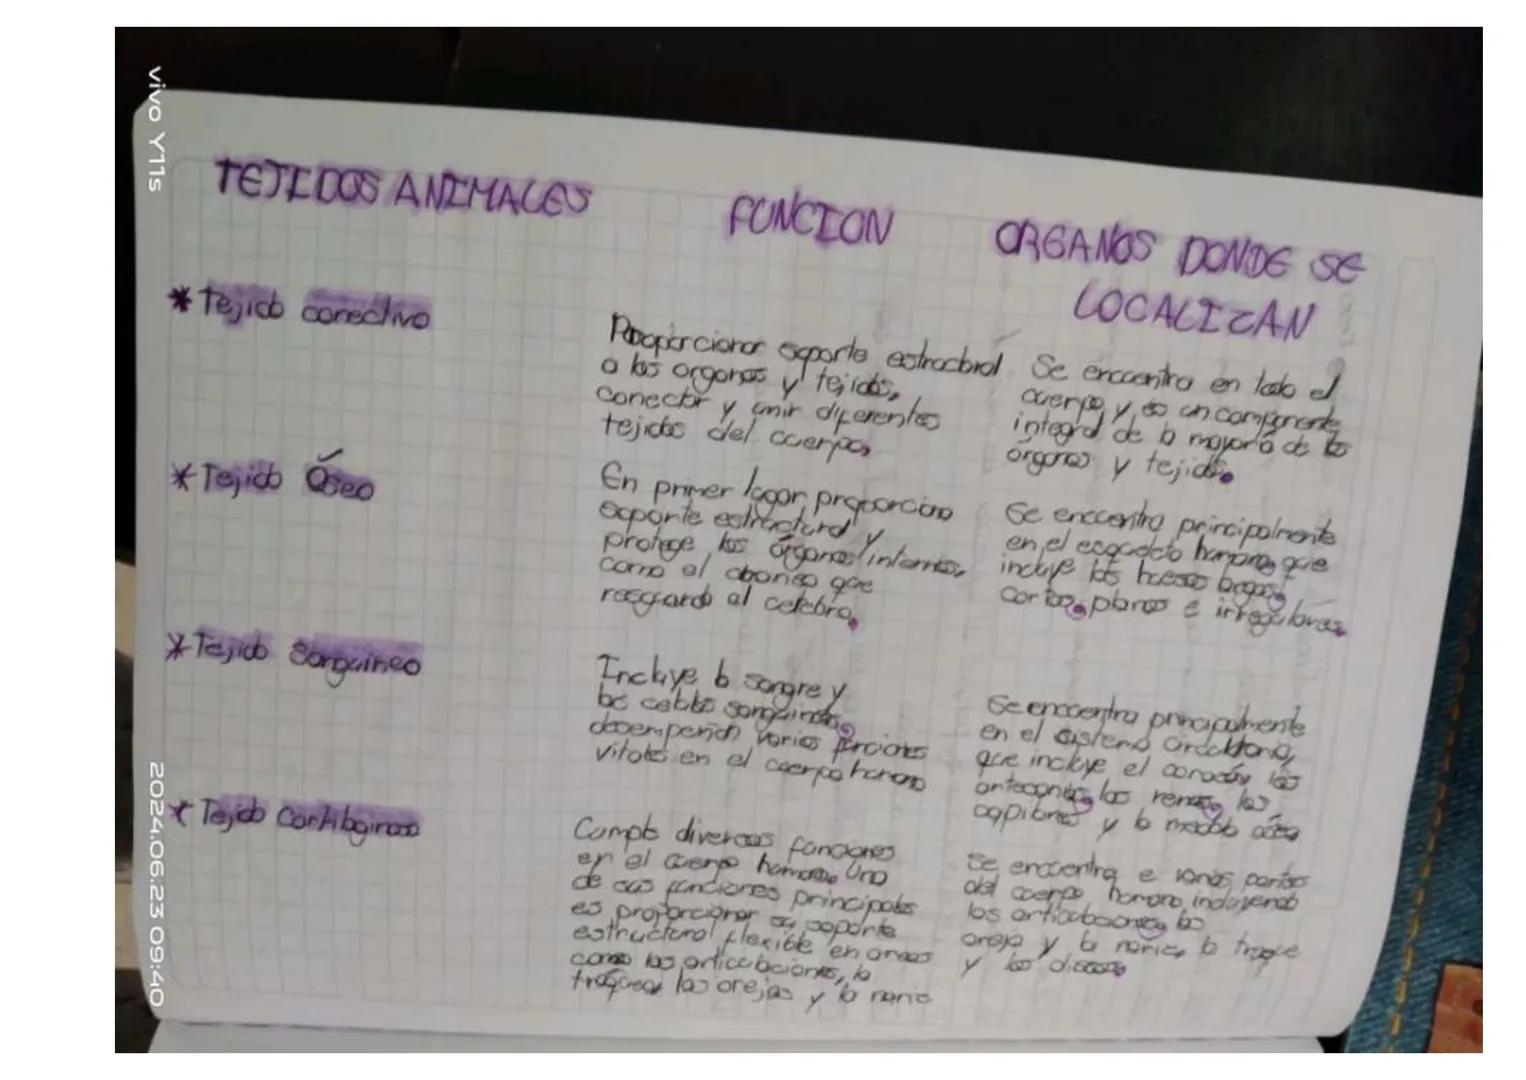 vivo Y11s
2024.06.23 09:40
TEJIDOS ANIMALES
FUNCION
ORGANOS DONDE SE
LOCALIZAN
* Tejido conectivo
Proporcionar soporte estructural
a los organos y tejidos,
conectar y unir diferentes
tejidos del cuerpo,
Se encuentra en todo el
cuerpo, y es un componente
integral de la mayoría de los
organos y tejidos.
* Tejido Óseo
En primer lugar proporciona
soporte estructural y
protege los órganos internos,
como el que
resguarda al celebro.
Se encuentra principalmente
en el esqueleto humano, que
incluye los huesos largos,
cortos, planos e irregulares.
* Tejido Sanguineo
Incluye la sangre y
las celulas sanguineas,
desempeñan varias funciones
vitales en el cuerpo humano
Se encuentra principalmente
en el sistema circulatorio,
que incluye el corazón, las
las las
capilares y la medula osea
* Tejido Cartilaginoso
Cumple diversas funciones
en el cuerpo humano. Una
de sus funciones principales
es proporcionar su soporte
estructural flexible en areas
como las articulaciones, la
tráquea, las orejas y la nariz
Se encuentra e varias partes
del cuerpo humano, incluyendo
las articulaciones, la
oreja y la nariz, la traque
y los discos